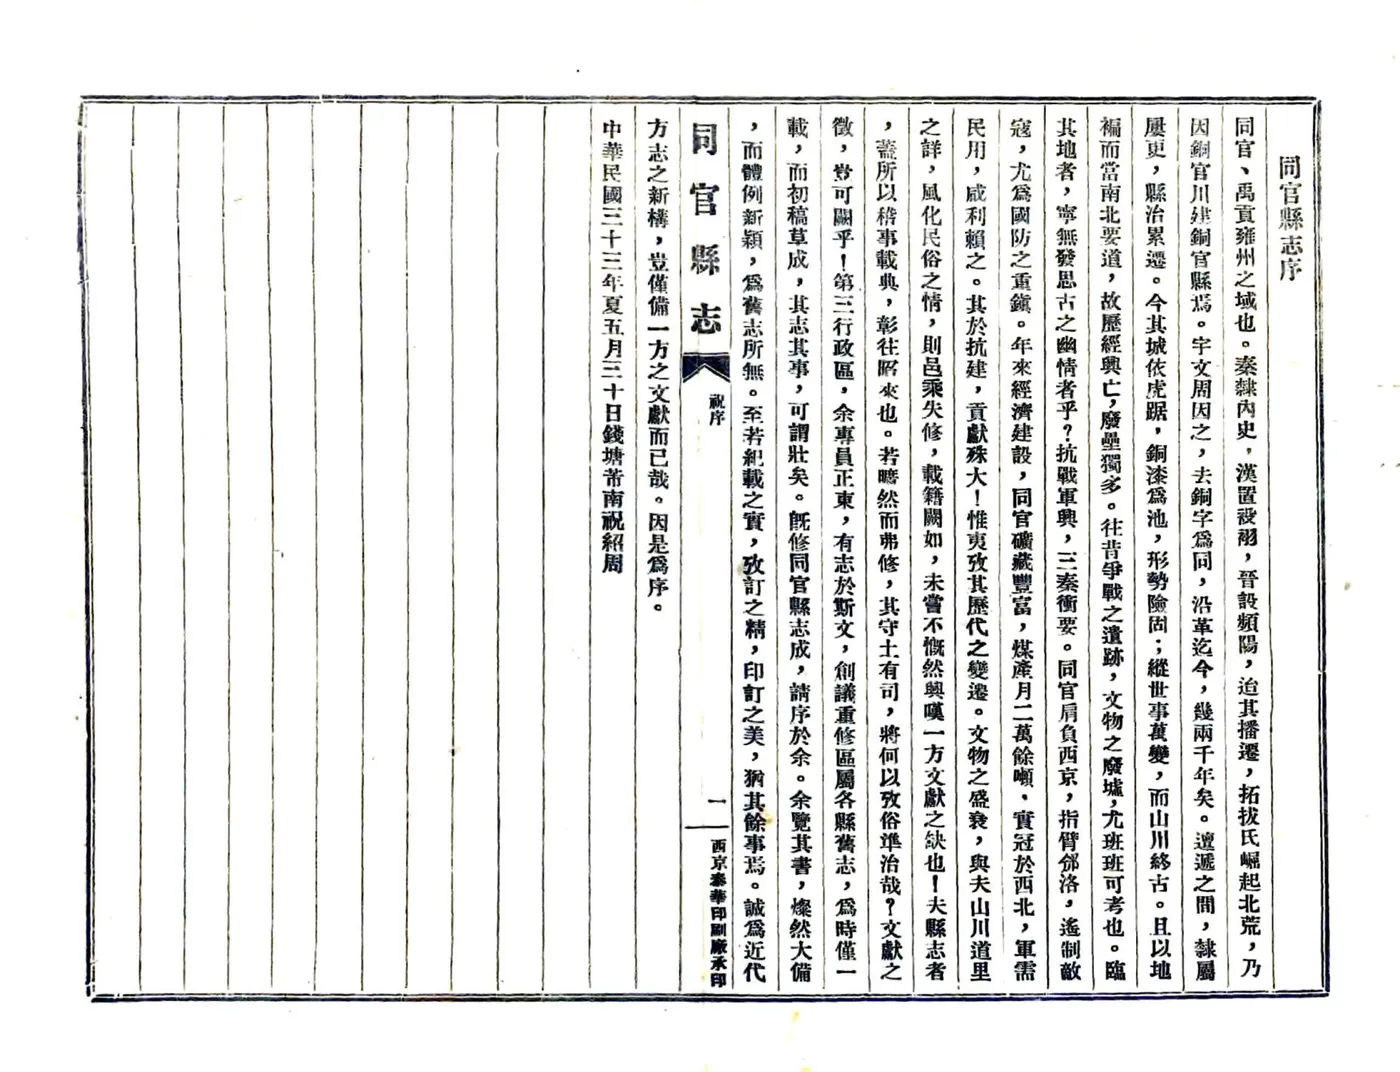 同官縣志序
同官、禹貢雍州之域也。秦隸內史，漢置祋祤，晉設頻陽，迨其播遷，拓拔氏崛起北荒，乃
因銅官川建銅官縣焉。宇文周因之，去銅字爲同，沿革迄今，幾兩千年矣。遭遞之間，隸屬
屢更，縣治累遷。今其城依虎踞，銅漆爲池，形勢險固；縱世事萬變，而山川終古。且以地
褊而當南北要道，故歷經興亡，廢壘獨多。往昔爭戰之遺跡，文物之廢墟，尤班班可考也。臨
其地者，寧無發思古之幽情者乎？抗戰軍興，三秦衝要。同官肩負西京，指臂鄜洛，遙制敵
寇，尤爲國防之重鎮。年來經濟建設，同官礦藏豐富，煤產月二萬餘噸，實冠於西北，軍需
民用，咸利賴之。其於抗建，貢獻殊大！惟夷攷其歷代之變遷。文物之盛衰，與夫山川道里
之詳，風化民俗之情，則邑乘失修，載籍闕如，未嘗不慨然興嘆一方文獻之缺也！夫縣志者
，蓋所以稽事載典，彰往昭來也。若曠然而弗修，其守土有司，將何以攷俗準治哉？文獻之
徵，豈可闕乎！第三行政區，余專員正東，有志於斯文，創議重修區屬各縣舊志，爲時僅一
載，而初稿草成，其志其事，可謂壯矣。旣修同官縣志成，請序於余。余覽其書，燦然大備
，而體例新穎，爲舊志所無。至若紀載之實，攷訂之精，印訂之美，猶其餘事焉。誠爲近代
同官縣志
祝序
一
西京泰華印刷廠承印
方志之新構，豈僅備一方之文獻而已哉。因是爲序。
中華民國三十三年夏五月三十日錢塘芾南祝紹周